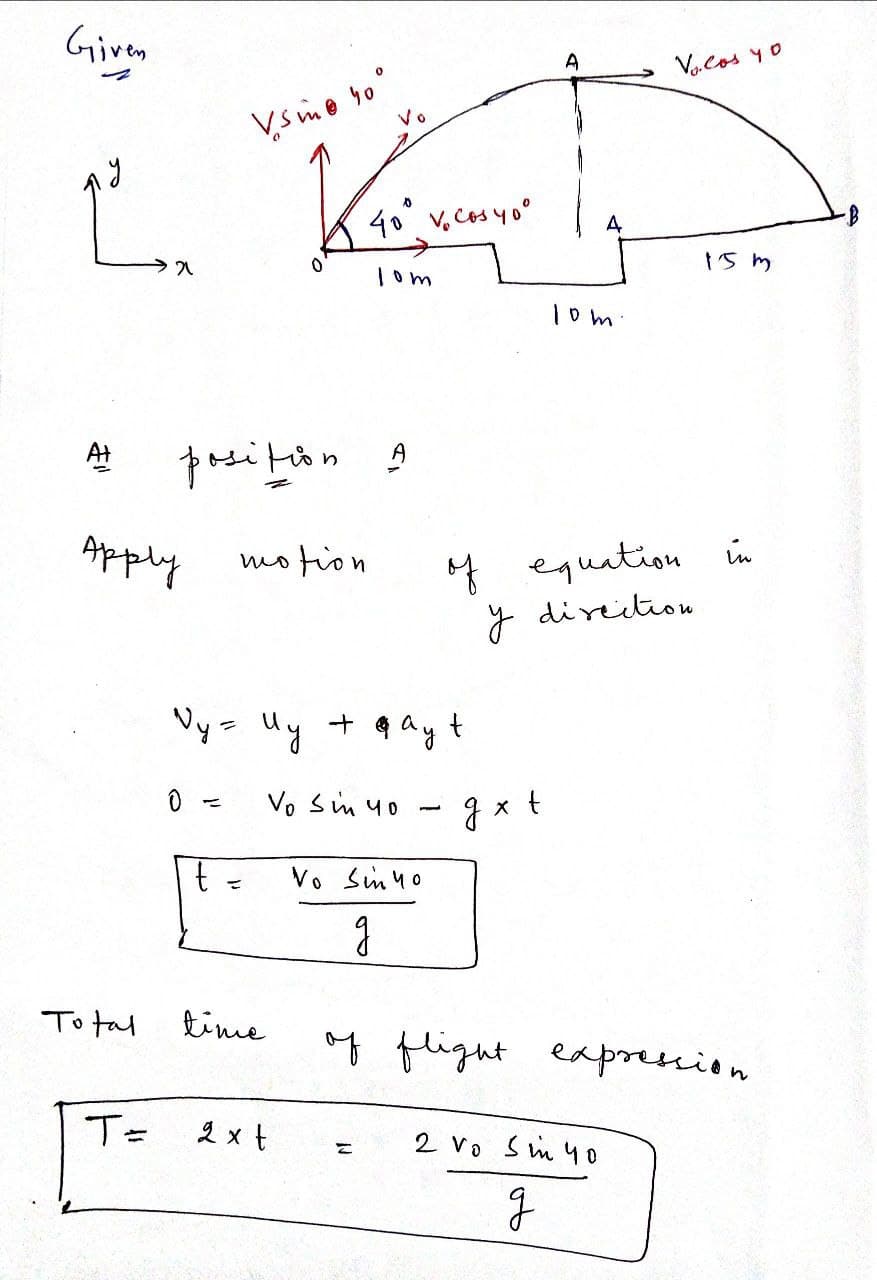 Given
A
V₀cos 40
V₀sin 40°
V₀
y
40° V₀ cos 40°
A
B
x
O
10m
15 m
10 m.
At position A
Apply motion of equation in
y direction
Vy = uy + ay t
0 = V₀ sin 40 - g x t
t = V₀ sin 40
g
Total time of flight expression
T = 2 x t = 2 V₀ sin 40
g